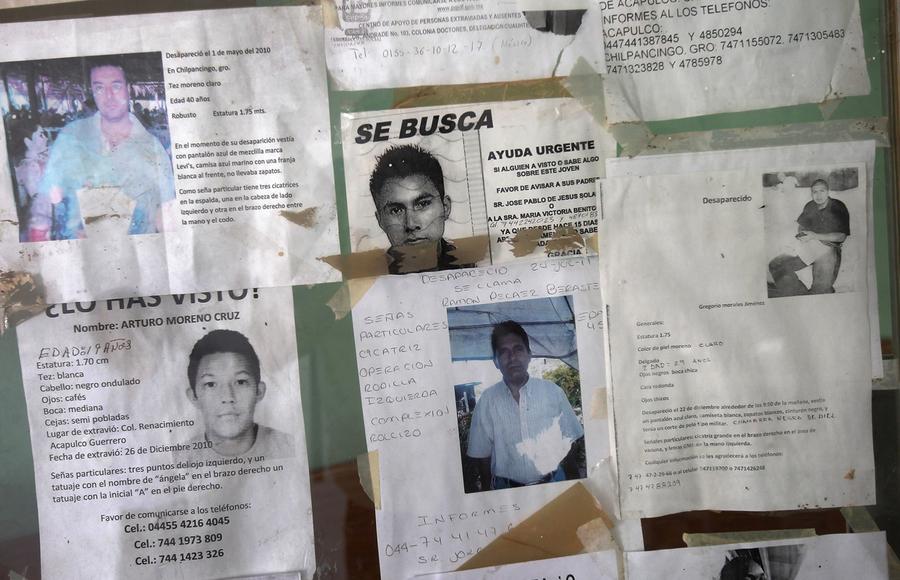 Desapareció el 1 mayo del 2010
En Chilpancingo, gro.
Tez moreno claro
Edad 40 años
Robusto Estatura 1.75 mts.
En el momento de su desaparición vestía
con pantalón azul de mezclilla marca
Levi's, camisa azul marino con una franja
blanca al frente, no llevaba zapatos.
Como seña particular tiene tres cicatrices
en la espalda, una en la cabeza de lado
izquierdo y otra en el brazo derecho entre
la mano y el codo.
PARA MAYORES INFORMES COMUNICARTE A
CENTRO DE APOYO DE PERSONAS EXTRAVIADAS Y AUSENTES
No. 103, COLONIA DOCTORES, DELEGACIÓN
Tel: 0155-36-10-12-17 (México)
DE ACAPULCO.
INFORMES AL LOS TELEFONOS:
ACAPULCO:
0447441387845 Y 4850294
CHILPANCINGO. GRO: 7471155072. 7471305483
7471323828 Y 4785978
SE BUSCA
AYUDA URGENTE
SI ALGUIEN A VISTO O SABE ALGO
SOBRE ESTE JOVEN
FAVOR DE AVISAR A SUS PADRE
SR. JOSE PABLO DE JESUS SOLA
O
A LA SRA. MARIA VICTORIA BENITO
YA QUE DESDE HACE 15 DIAS
SABE
GRACIA
¿LO HAS VISTO?
Nombre: ARTURO MORENO CRUZ
EDAD: 19 AÑOS
Estatura: 1.70 cm
Tez: blanca
Cabello: negro ondulado
Ojos: cafés
Boca: mediana
Cejas: semi pobladas
Lugar de extravió: Col. Renacimiento
Acapulco Guerrero
Fecha de extravió: 26 de Diciembre 2010
Señas particulares: tres puntos del ojo izquierdo, y un
tatuaje con el nombre de “ángela” en el brazo derecho un
tatuaje con la inicial “A” en el pie derecho.
Favor de comunicarse a los teléfonos:
Cel.: 04455 4216 4045
Cel.: 744 1973 809
Cel.: 744 1423 326
DESAPARECIO
SE LLAMA
RAMON
SEÑAS
PARTICULARES
CICATRIZ
OPERACION
RODILLA
IZQUIERDA
COMPLEXION
ROLLIZO
INFORMES
044-74 41 47
SR. JOR
Desaparecido
Gregorio morales Jiménez
Generales:
Estatura 1.75
Color de piel moreno CLARO
Delgado
EDAD = 29 AÑOS
Ojos negros boca chica
Cara redonda
Ojos chicos
Desapareció el 22 de diciembre alrededor de las 9:50 de la mañana, vestía
un pantalón azul claro, camiseta blanca, zapatos blancos, cinturón negro, y
tenía un corte de pelo tipo militar. CHAMARRA NEGRA DE PIEL
Señales particulares: cicatriz grande en el brazo derecho en el área de
vacuna, y de la mano izquierda.
Cualquier información se les agradecerá a los teléfonos: